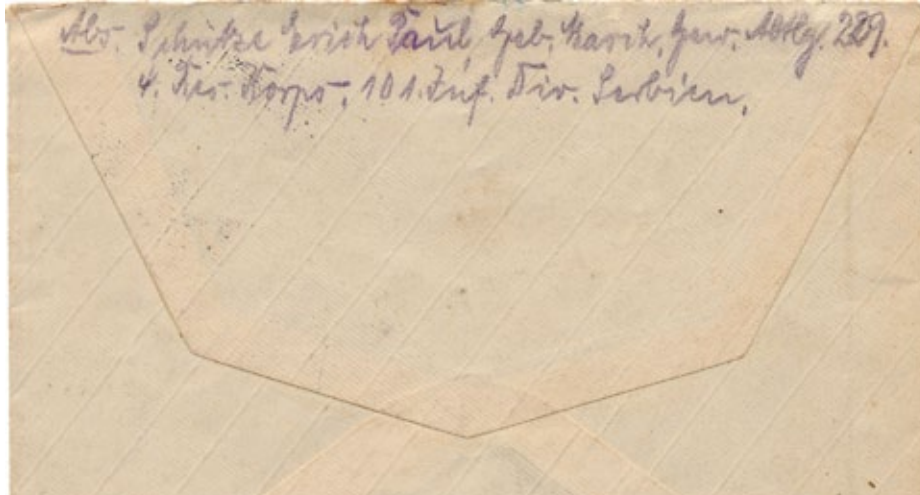 Abs. Schütze Erich Paul, Geb. Masch. Gew. Abtlg. 229.
4. Res. Korps, 101. Inf. Div. Serbien.